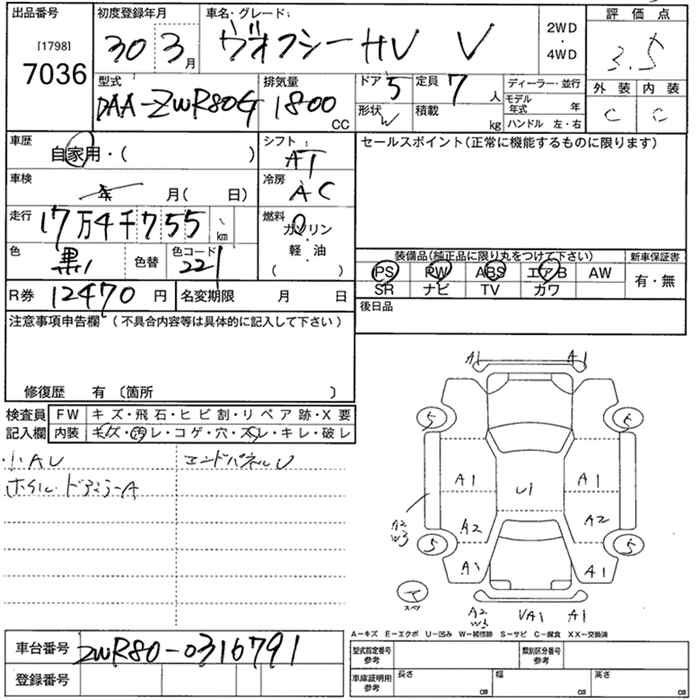 出品番号
[1798]
7036
初度登録年月
30 3月
車名・グレード:
ヴオクシーHV V
2WD
・
4WD
評価点
3.5
外装 内装
C C
型式
DAA-ZWR80G
排気量
1800
CC
ドア 5
形状 W
定員 7人
積載 kg
ディーラー・並行
モデル年式 年
ハンドル 左・右
車歴
自家用・( )
車検
年 月( 日)
走行
17万4千755 km
色
黒
色替
色コード
221
シフト
AT
冷房
AC
燃料
ガソリン
軽・油
( )
セールスポイント(正常に機能するものに限ります)
装備品(純正品に限り丸をつけて下さい)
新車保証書
PS PW ABS エアB AW
SR ナビ TV カワ
有・無
R券 12470 円
名変期限 月 日
後日品
注意事項申告欄(不具合内容等は具体的に記入して下さい)
修復歴 有 〔箇所 〕
検査員記入欄
FW キズ・飛石・ヒビ割・リペア跡・X要
内装 キズ・汚レ・コゲ・穴・スレ・キレ・破レ
・小AU
エンドパネルU
ホイル・ドアミラーA
A1 A1
5 6
A1 A1
U1
A2 A2
A2
W3
5 5
A1 A1
T
スペア
A2
W3
VA1 A1
A−キズ E−エクボ U−凹み W−補修跡 S−サビ C−腐食 XX−交換済
車台番号 ZWR80-0316791
登録番号
型式指定番号
参考
類別区分番号
参考
車庫証明用
参考
長さ cm
幅 cm
高さ cm